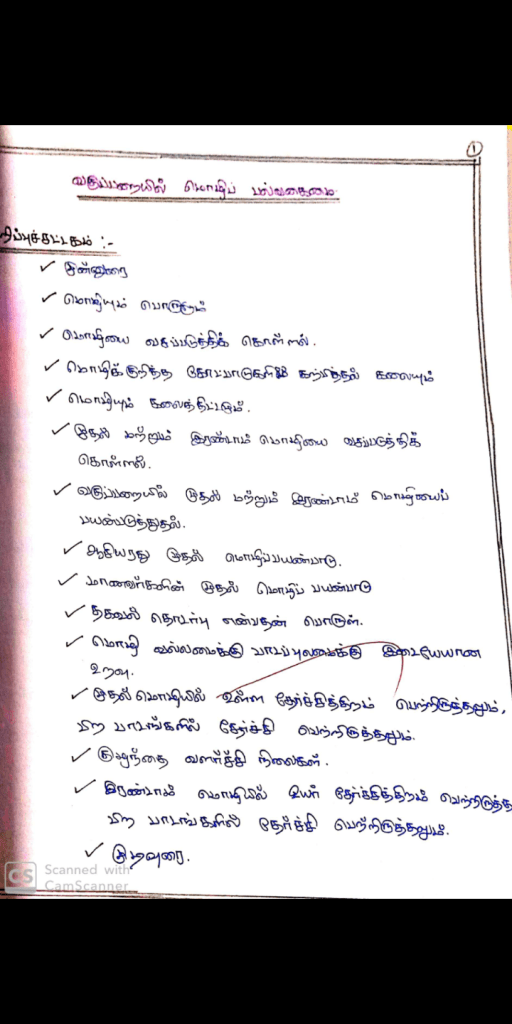 1
வகுப்பறையில் மொழிப் பல்வகைமை
றிப்புச்சட்டகம் :-
✓ முன்னுரை
✓ மொழியும் பொருளும்
✓ மொழியை வசப்படுத்திக் கொள்ளல்.
✓ மொழிக்குறித்த கோட்பாடுகளும் கற்பித்தல் கலையும்
✓ மொழியும் கலைத்திட்டமும்.
✓ முதல் மற்றும் இரண்டாம் மொழியை வசப்படுத்திக்
கொள்ளல்.
✓ வகுப்பறையில் முதல் மற்றும் இரண்டாம் மொழியைப்
பயன்படுத்துதல்.
✓ ஆசிரியரது முதல் மொழிப்பயன்பாடு.
✓ மாணவர்களின் முதல் மொழிப் பயன்பாடு
✓ தகவல் தொடர்பு என்பதன் பொருள்.
✓ மொழி வல்லமைக்கு பாடப்புலமைக்கு இடையேயான
உறவு.
✓ முதல் மொழியில் உள்ள தேர்ச்சித்திறம் பெற்றிருத்தலும்,
பிற பாடங்களில் தேர்ச்சி பெற்றிருத்தலும்.
✓ குழந்தை வளர்ச்சி நிலைகள்.
✓ இரண்டாம் மொழியில் உயர் தேர்ச்சித்திறம் பெற்றிருத்த
பிற பாடங்களில் தேர்ச்சி பெற்றிருத்தலும்.
✓ முடிவுரை.
CS Scanned with
CamScanner